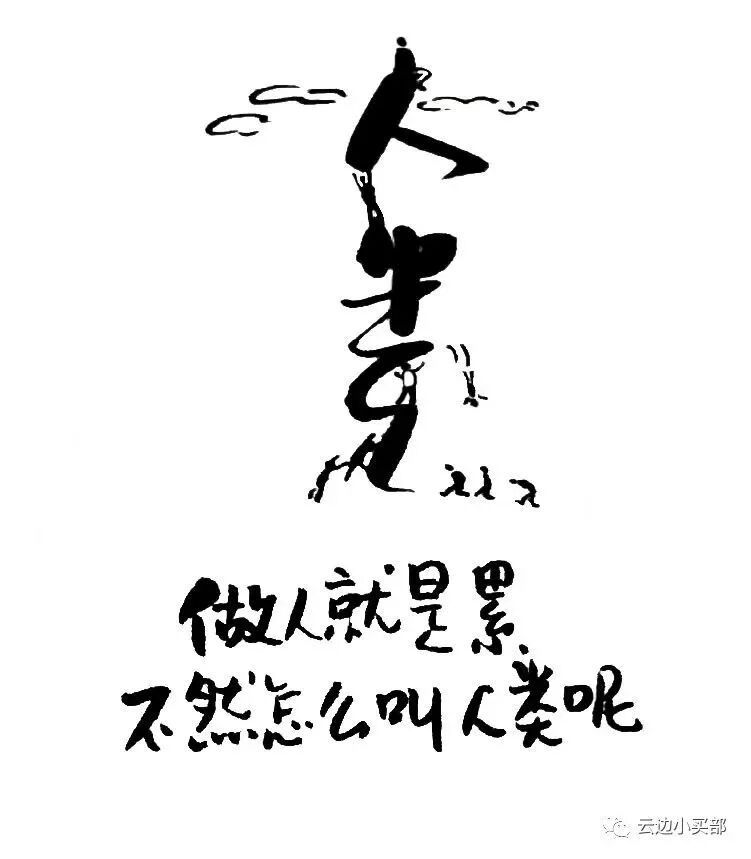 人
做人就是累
不然怎么叫人类呢
云边小买部